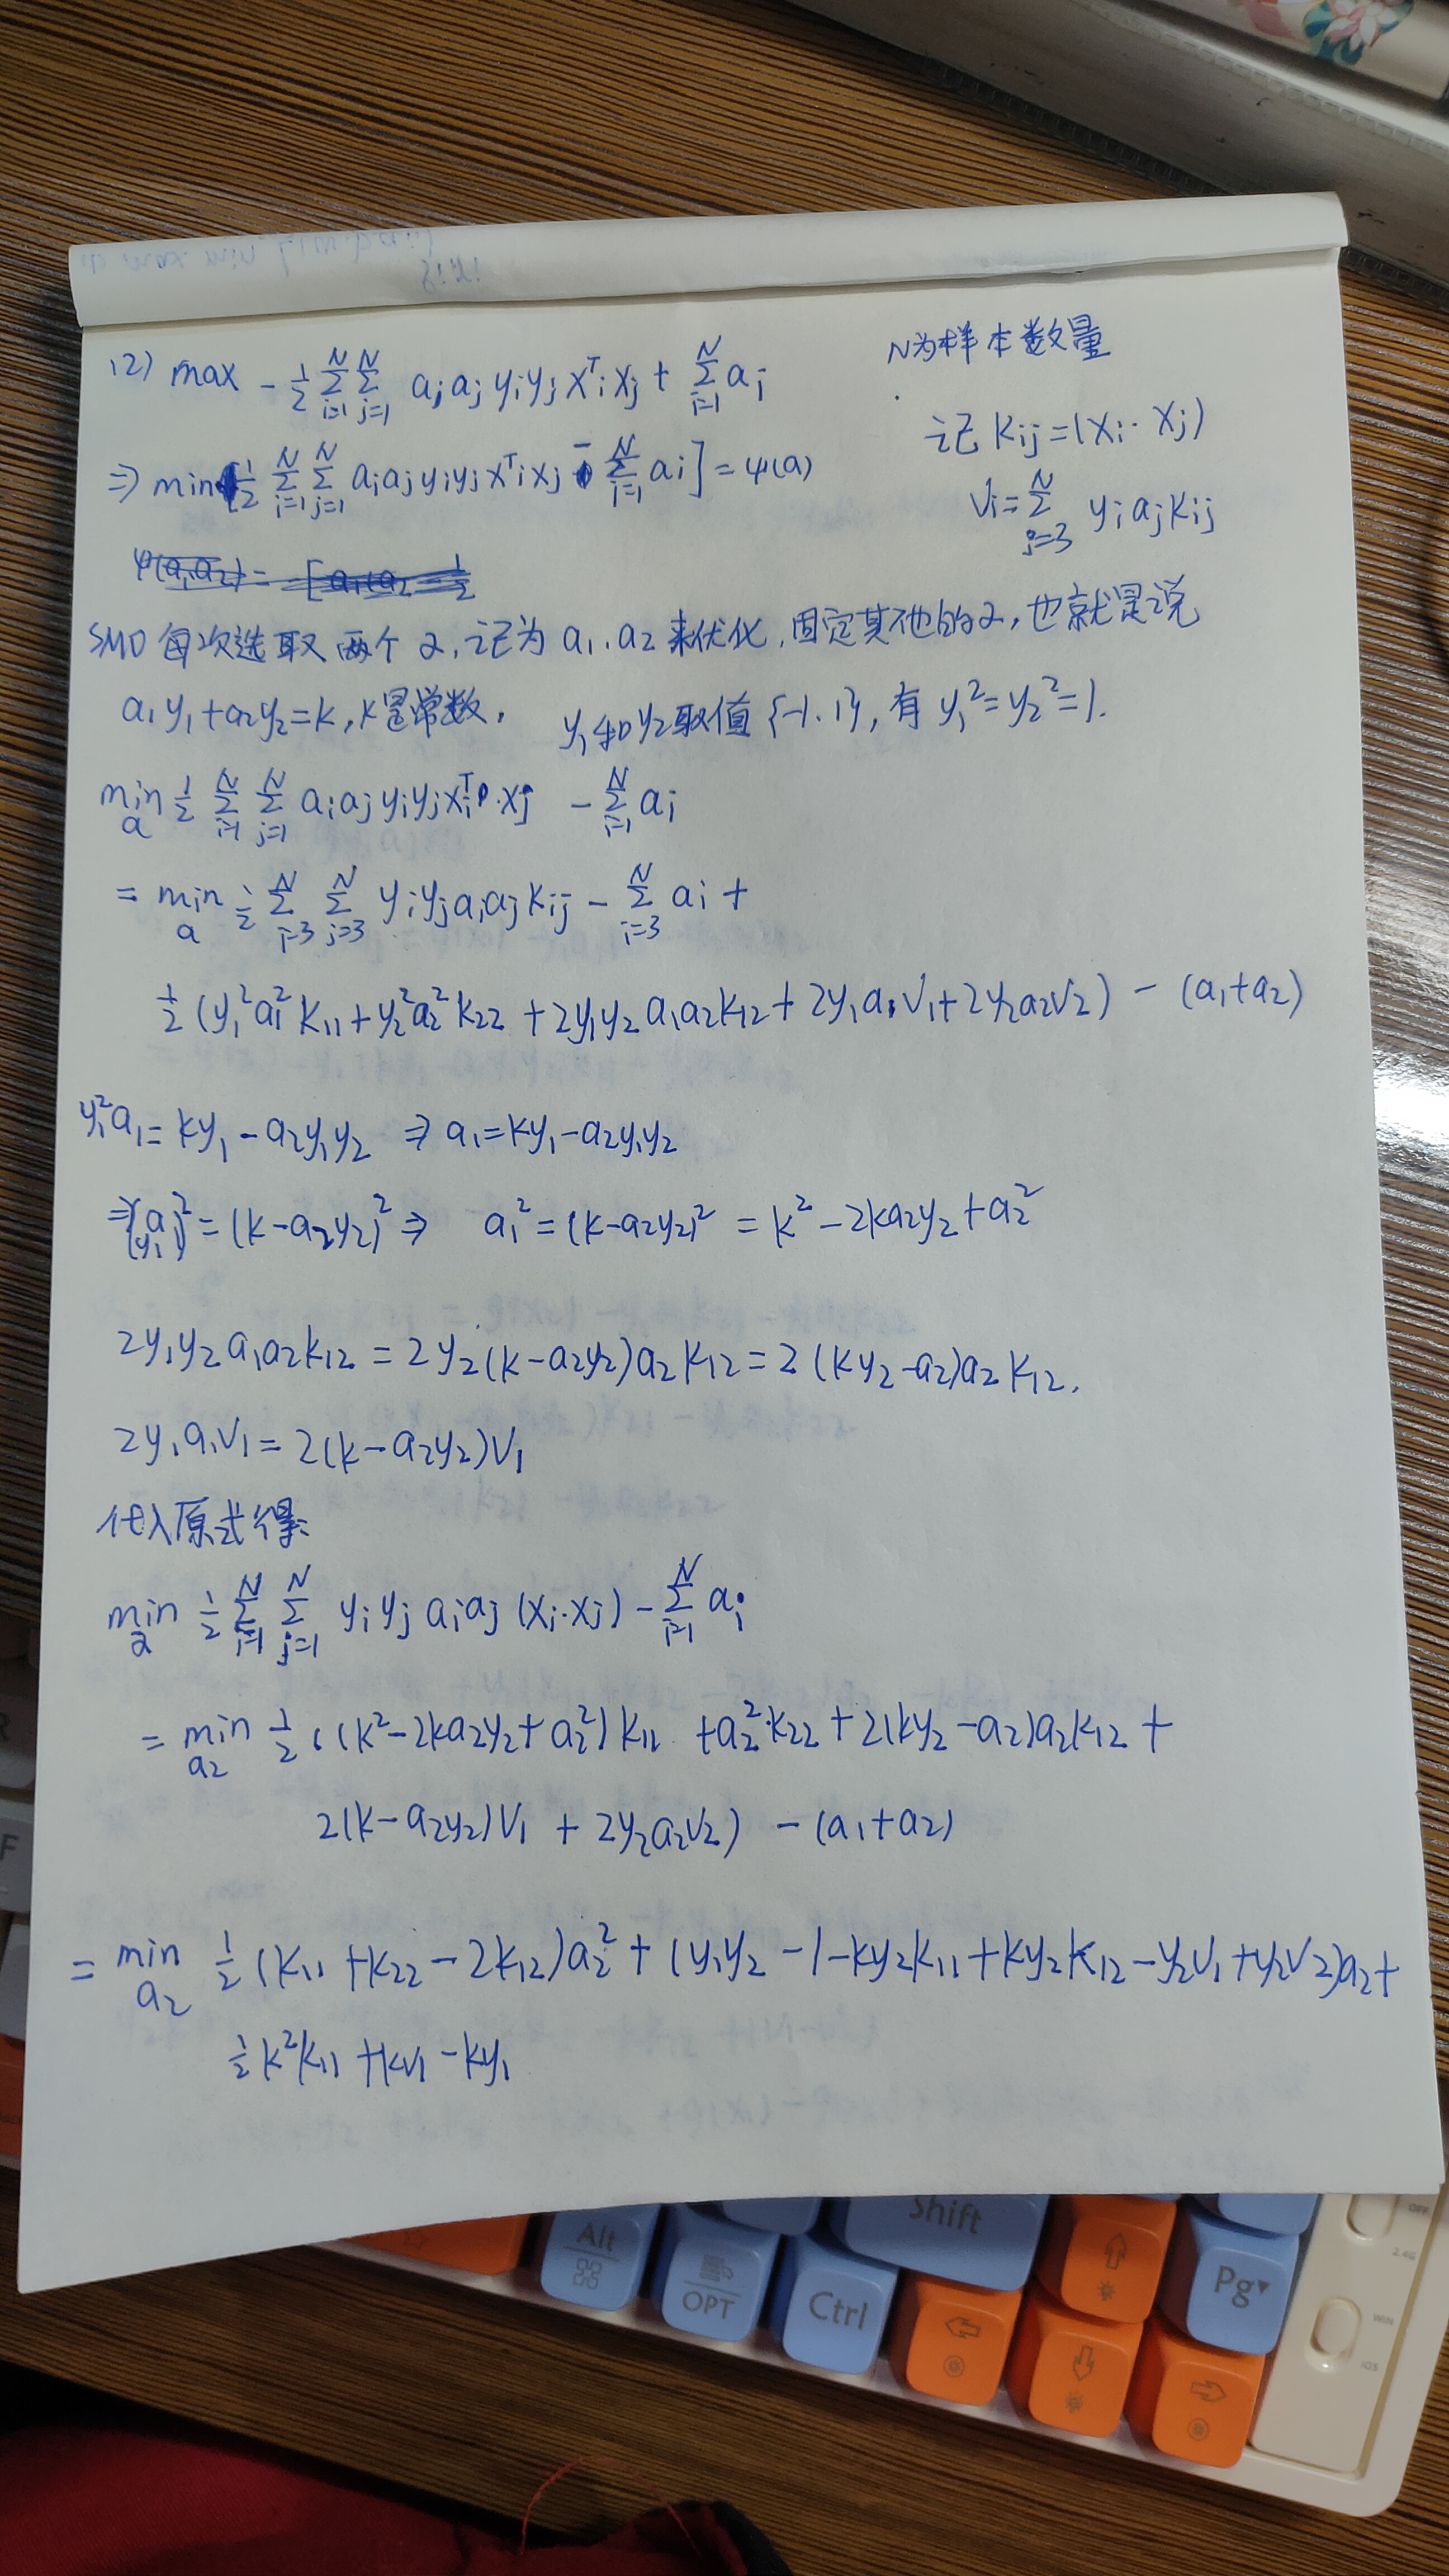 (2) max -½ Σ_{i=1}^{N} Σ_{j=1}^{N} a_i a_j y_i y_j x_i^T x_j + Σ_{i=1}^{N} a_i
N为样本数量
记 K_ij=(x_i·x_j)
⇒ min[½ Σ_{i=1}^{N} Σ_{j=1}^{N} a_i a_j y_i y_j x_i^T x_j - Σ_{i=1}^{N} a_i] = ψ(a)
V_i=Σ_{j=3}^{N} y_i a_j K_ij
SMO 每次选取两个α,记为a_1.a_2来优化,固定其他的α,也就是说
a_1y_1+a_2y_2=k,k是常数. y_1和y_2取值{-1.1},有y_1²=y_2²=1.
min_a ½ Σ_{i=1}^{N} Σ_{j=1}^{N} a_i a_j y_i y_j x_i^T·x_j - Σ_{i=1}^{N} a_i
= min_a ½ Σ_{i=3}^{N} Σ_{j=3}^{N} y_i y_j a_i a_j K_ij - Σ_{i=3}^{N} a_i +
½(y_1²a_1²K_11+y_2²a_2²K_22+2y_1y_2a_1a_2K_12+2y_1a_1V_1+2y_2a_2V_2) - (a_1+a_2)
y_1²a_1=ky_1-a_2y_1y_2 ⇒ a_1=ky_1-a_2y_1y_2
⇒(a_1/y_1)²=(k-a_2y_2)² ⇒ a_1²=(k-a_2y_2)²=k²-2ka_2y_2+a_2²
2y_1y_2a_1a_2K_12=2y_2(k-a_2y_2)a_2K_12=2(ky_2-a_2)a_2K_12.
2y_1a_1V_1=2(k-a_2y_2)V_1
代入原式得:
min_α ½ Σ_{i=1}^{N} Σ_{j=1}^{N} y_i y_j a_i a_j (x_i·x_j) - Σ_{i=1}^{N} a_i
= min_{a_2} ½((k²-2ka_2y_2+a_2²)K_11 +a_2²·K_22+2(ky_2-a_2)a_2K_12+
2(k-a_2y_2)V_1 + 2y_2a_2V_2) - (a_1+a_2)
= min_{a_2} ½(K_11+K_22-2K_12)a_2²+(y_1y_2-1-ky_2K_11+ky_2K_12-y_2V_1+y_2V_2)a_2+
½k²K_11+kV_1-ky_1
Shift
Alt
OPT
Ctrl
Pg
R
F
OFF
2.4G
WIN
iOS